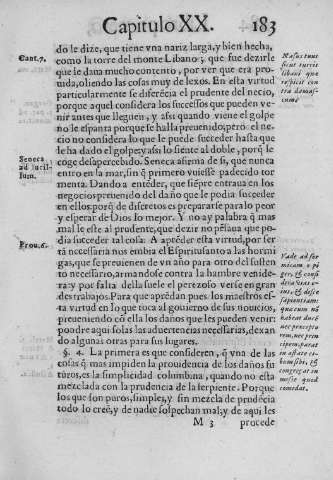 Capitulo XX. 183
do le dize, que tiene vna nariz larga, y bien hecha,
como la torre del monte Libano; que fue dezirle
que le daua mucho contento, por ver que era pro-
uida, oliendo las cosas muy de lexos. En esta virtud
particularmente se diferēcia el prudente del necio,
porque aquel considera los successos que pueden ve-
nir antes que lleguen, y assi quando viene el golpe
no le espanta porque se halla preuenido; pero el ne-
cio no considera lo que le puede suceder hasta que
le ha dado el golpe; y assi lo siēte al doble, porq̄ le
coge desapercebido. Seneca afirma de si, que nunca
entro en la mar, sin q̄ primero viesse padecido tor
menta. Dando a entēder, que siēpre entraua en los
negocios preuenido del daño que le podia succeder
en ellos, porq̄ de discretos es prepararse para lo peor
y esperar de Dios lo mejor. Y no ay palabra q̄ mas
mal le este al prudente, que dezir no pēsaua que po
dia succeder tal cosa. A aprēder esta virtud, por ser
tā necessaria nos embia el Espiritu santo a las hormi
gas, que se preuienen de vn año para otro del susten
to necessario, armandose contra la hambre venide-
ra: y por falta della suele el perezoso verse en gran
des trabajos. Para que aprēdan pues los maestros es-
ta virtud en lo que toca al gouierno de sus nouicios,
preueniendo cō ella los daños que les pueden venir:
pondre aqui solas las aduertencias necessarias, dexan
do algunas otras para sus lugares.
§. 4. La primera es que consideren, q̄ vna de las
cosas q̄ mas impiden la prouidencia de los daños fu
turos, es la simplicidad columbina, quando no esta
mezclada con la prudencia de la serpiente. Porque
los que son puros, simples, y sin mezcla de prudēcia
todo lo creē, y de nadie sospechan mal; y de aqui les
M 3 procede
Cant. 7.
Seneca
ad lucil-
lum.
Prou. 6.
Nasus tuus
sicut turris
libani que
respicit con
tra damas-
cum
Vade ad for
micam o pi
ger, & consi
dera vias e-
ius, & disce
sapientiam:
quæ cum nō
habeat ducē
nec præcepto
rem, nec prin
cipem: parat
in æstate ci-
bum sibi, &
congregat in
messe quod
comedat.